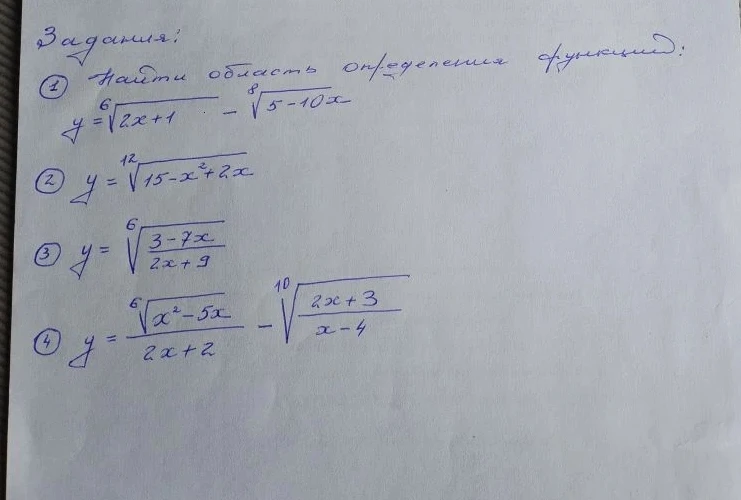 Задания:
① Найти область определения функций:
y = ⁶√(2x+1) - ⁸√(5-10x)
② y = ¹²√(15-x²+2x)
③ y = ⁶√((3-7x)/(2x+9))
④ y = ⁶√(x²-5x)/(2x+2) - ¹⁰√((2x+3)/(x-4))